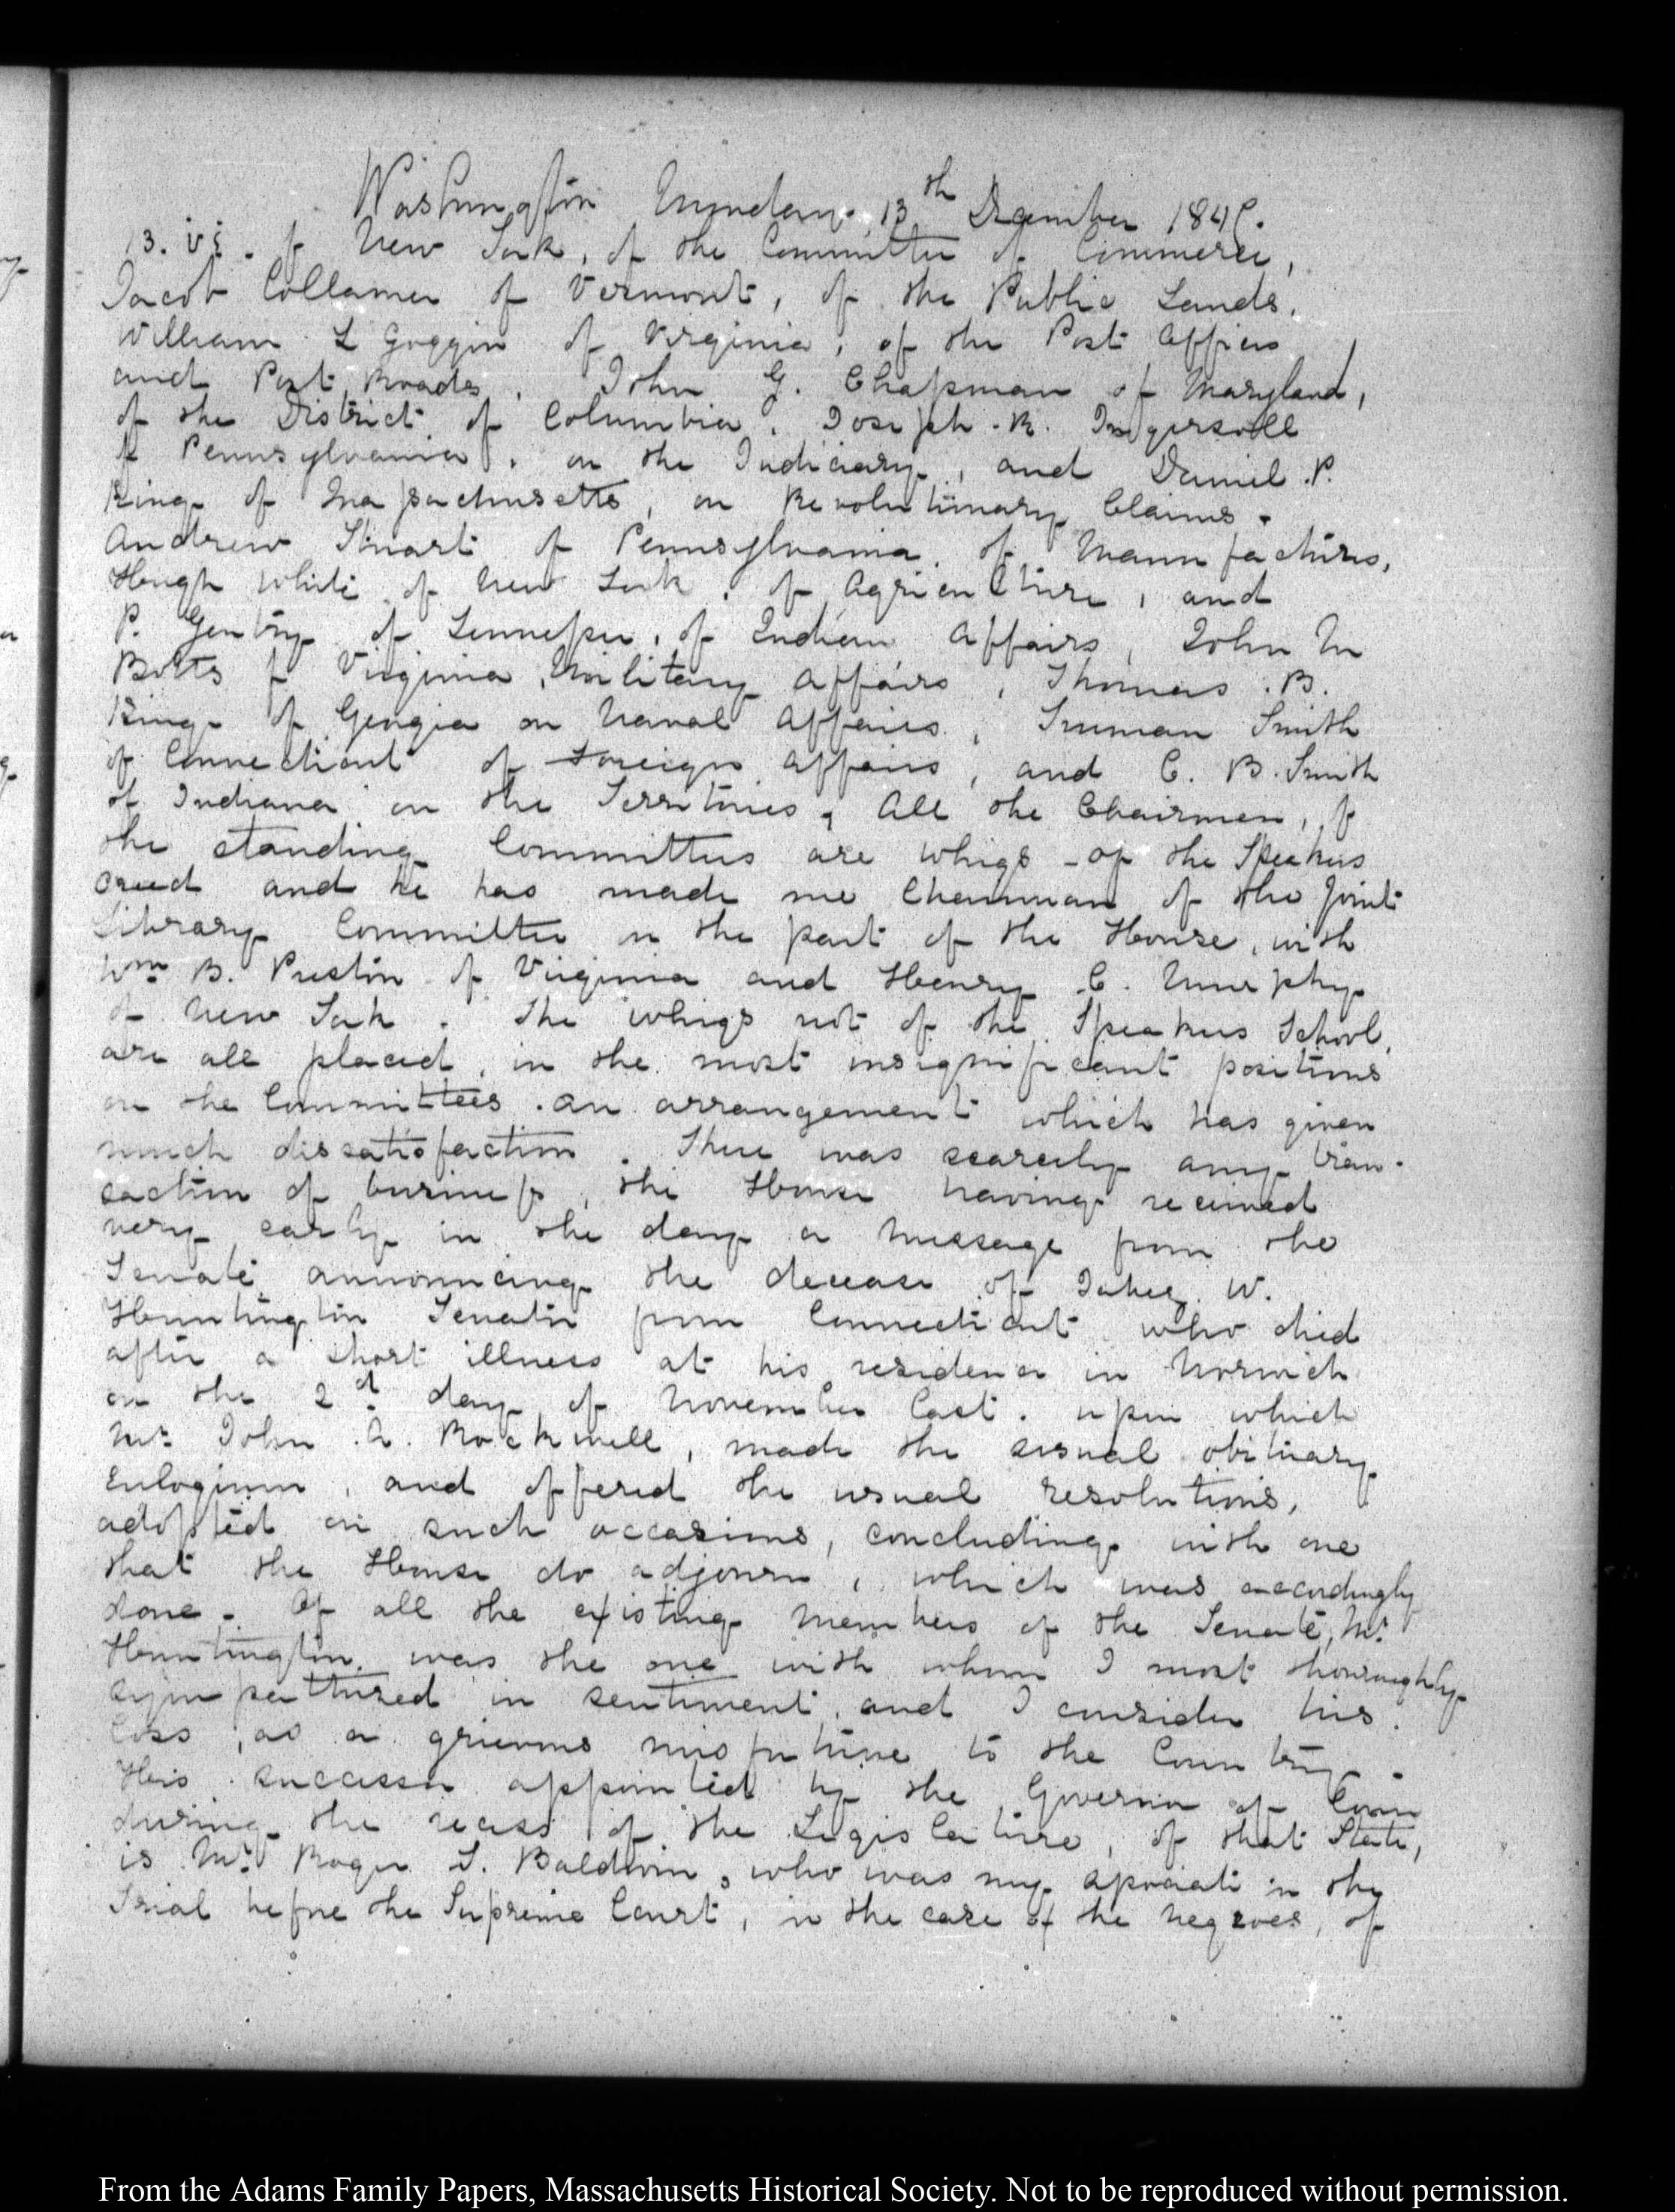 Washington Monday. 13th December 1847.
13. VI. of New York, of the Committee of Commerce,
Jacob Collamer of Vermont, of the Public Lands.
William L Goggin of Virginia, of the Post Offices
and Post Roads. John G. Chapman of Maryland,
of the District of Columbia. Joseph R. Ingersoll
of Pennsylvania, on the Judiciary, and Daniel P.
King of Massachusetts, on Revolutionary Claims.
Andrew Stuart of Pennsylvania of Manufactures,
Hugh White of New York, of Agriculture, and
P. Gentry of Tennessee, of Indian Affairs, John M
Botts of Virginia, Military Affairs, Thomas B.
King of Georgia on Naval Affairs, Truman Smith
of Connecticut of Foreign Affairs, and C. B. Smith
of Indiana on the Territories, All the Chairmen, of
the standing Committees are Whigs - of the Speakers
creed and he has made me Chairman of the joint
Library Committee on the part of the House, with
Wm B. Preston of Virginia and Henry C. Murphy
of New York. The Whigs not of the Speakers School,
are all placed, in the most insignificant positions
on the Committees. an arrangement which has given
much dissatisfaction. There was scarcely any tran-
saction of business, the House having received
very early in the day a Message from the
Senate announcing the decease of Jabez. W.
Huntington Senator from Connecticut who died
after a short illness at his residence in Norwich
on the 2d. day of November last. upon which
Mr John A. Rockwell, made the usual obituary
Eulogium, and offered the usual resolutions,
adopted on such occasions, concluding with one
that the House do adjourn, which was accordingly
done. Of all the existing Members of the Senate, Mr
Huntington was the one with whom I most thoroughly
sympathized in sentiment, and I consider his
loss, as a grievous misfortune to the Country.
His successor appointed by the Governor of Conn
during the recess of the Legislature, of that State,
is Mr Roger S. Baldwin, who was my associate in the
Trial before the Supreme Court, in the case of the negroes, of
From the Adams Family Papers, Massachusetts Historical Society. Not to be reproduced without permission.